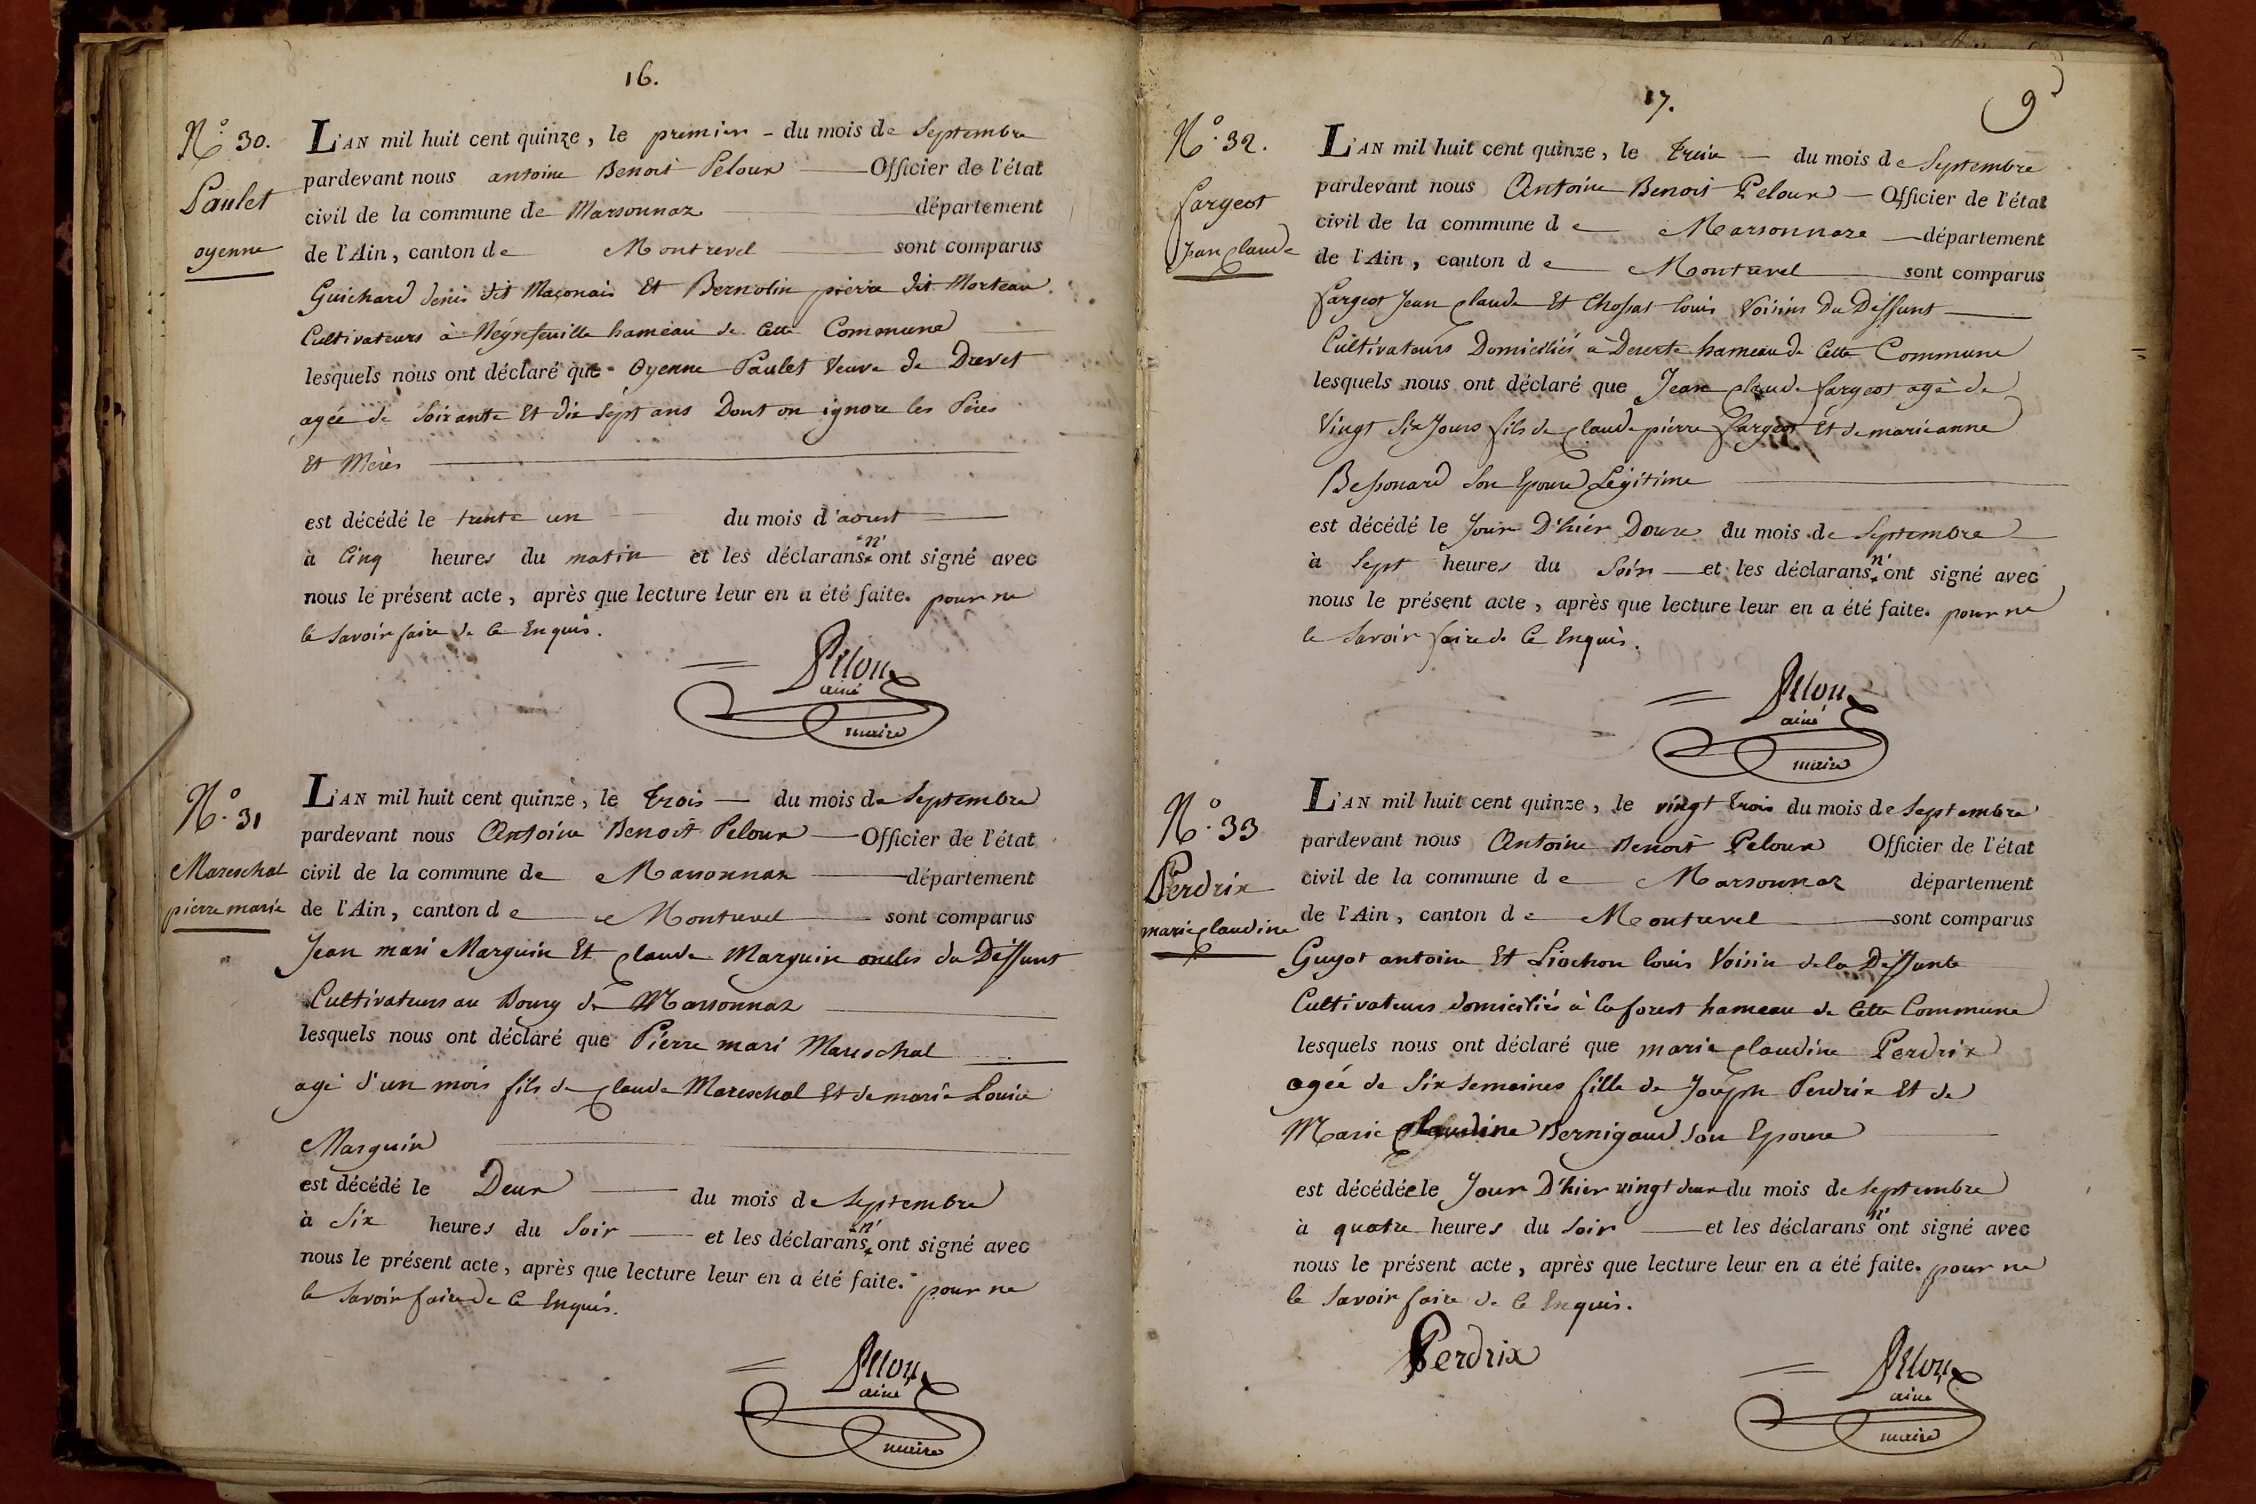 16.
N.º 30.
Paulet
oyenne
L'AN mil huit cent quinze, le premier - du mois de Septembre
pardevant nous antoine Benoit Peloux Officier de l'état
civil de la commune de Marsonnaz département
de l'Ain, canton de Montrevel sont comparus
Guichard denis dit Maçonais Et Bernolin pierre dit Morteau
Cultivateurs à Neyrefeuille hameau de Cette Commune
lesquels nous ont déclaré que Oyenne Paulet Veuve de Drevet
agée de Soixante Et dix Sept ans Dont on ignore les Pères
Et Mères
est décédé le trente un du mois d'aoust
à Cinq heures du matin et les déclarans n'ont signé avec
nous le présent acte, après que lecture leur en a été faite. pour ne
le Savoir faire de Ce Enquis.
Peloux
ainé
maire
N.º 31
Mareschal
pierre marie
L'AN mil huit cent quinze, le trois du mois de Septembre
pardevant nous Antoine Benoit Peloux Officier de l'état
civil de la commune de Marsonnaz département
de l'Ain, canton de Montrevel sont comparus
Jean mari Marguin Et Claude Marguin oncles du Deffunt
Cultivateurs au Bourg de Marsonnaz
lesquels nous ont déclaré que Pierre mari Mareschal
agé d'un mois fils de Claude Mareschal Et de marie Louise
Marguin
est décédé le Deux du mois de Septembre
à Six heures du Soir et les déclarans n'ont signé avec
nous le présent acte, après que lecture leur en a été faite. pour ne
le Savoir faire de Ce Enquis.
Peloux
ainé
maire
17.
9
N.º 32.
fargeot
Jean Claude
L'AN mil huit cent quinze, le treize du mois de Septembre
pardevant nous Antoine Benoit Peloux Officier de l'état
civil de la commune de Marsonnaz département
de l'Ain, canton de Montrevel sont comparus
fargeot Jean Claude Et Chossat louis Voisins du Deffunt
Cultivateurs Domiciliés à Deserte hameau de Cette Commune
lesquels nous ont déclaré que Jean Claude fargeot agé de
Vingt Six Jours fils de Claude pierre fargeot Et de marie anne
Bessonard Son Epouse Légitime
est décédé le Jour D'hier Douze du mois de Septembre
à Sept heures du Soir et les déclarans n'ont signé avec
nous le présent acte, après que lecture leur en a été faite. pour ne
le Savoir faire de Ce Enquis.
Peloux
ainé
maire
N.º 33
Perdrix
marie Claudine
L'AN mil huit cent quinze, le vingt trois du mois de Septembre
pardevant nous Antoine Benoit Peloux Officier de l'état
civil de la commune de Marsonnaz département
de l'Ain, canton de Montrevel sont comparus
Guyot antoine Et Liochon louis Voisin de la Deffunte
Cultivateurs domiciliés à la forest hameau de Cette Commune
lesquels nous ont déclaré que marie Claudine Perdrix
agée de Six Semaines fille de Joseph Perdrix Et de
Marie Claudine Bernigaud Son Epouse
est décédée le Jour D'hier vingt deux du mois de Septembre
à quatre heures du Soir et les déclarans n'ont signé avec
nous le présent acte, après que lecture leur en a été faite. pour ne
le Savoir faire de Ce Enquis.
Perdrix
Peloux
ainé
maire